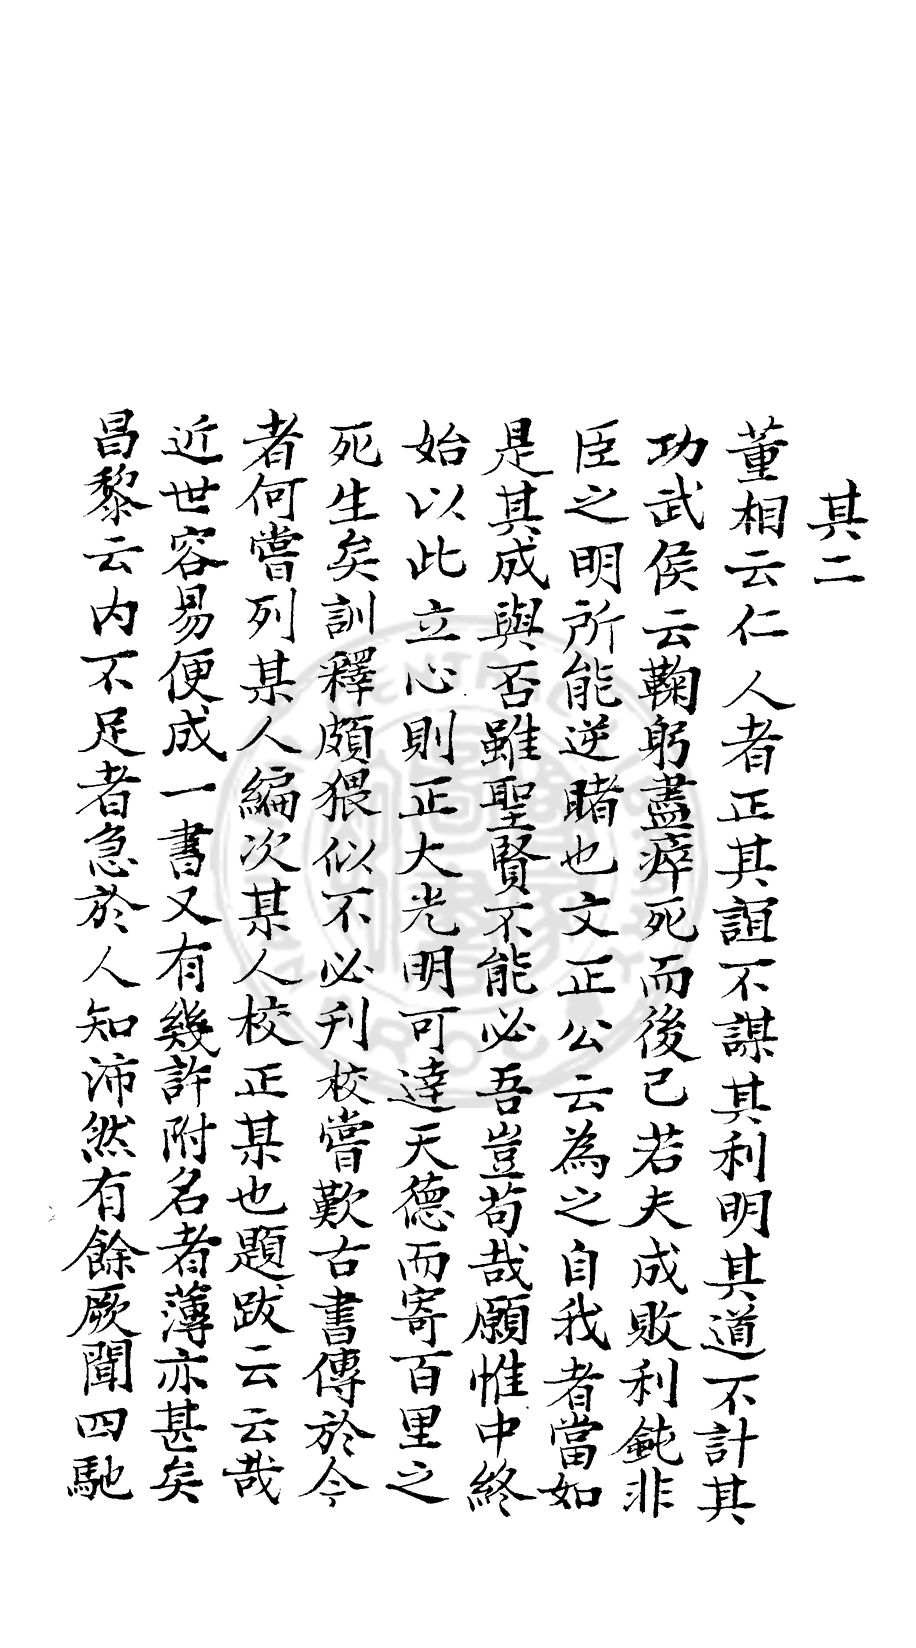 其二
董相云仁人者正其誼不謀其利明其道不計其
功武侯云鞠躬盡瘁死而後已若夫成敗利鈍非
臣之明所能逆睹也文正公云為之自我者當如
是其成與否雖聖賢不能必吾豈苟哉願惟中終
始以此立心則正大光明可達天德而寄百里之
死生矣訓釋頗猥似不必刋校嘗歎古書傳於今
者何嘗列某人編次某人校正某也題跋云云哉
近世容易便成一書又有幾許附名者薄亦甚矣
昌黎云内不足者急於人知沛然有餘厥聞四馳